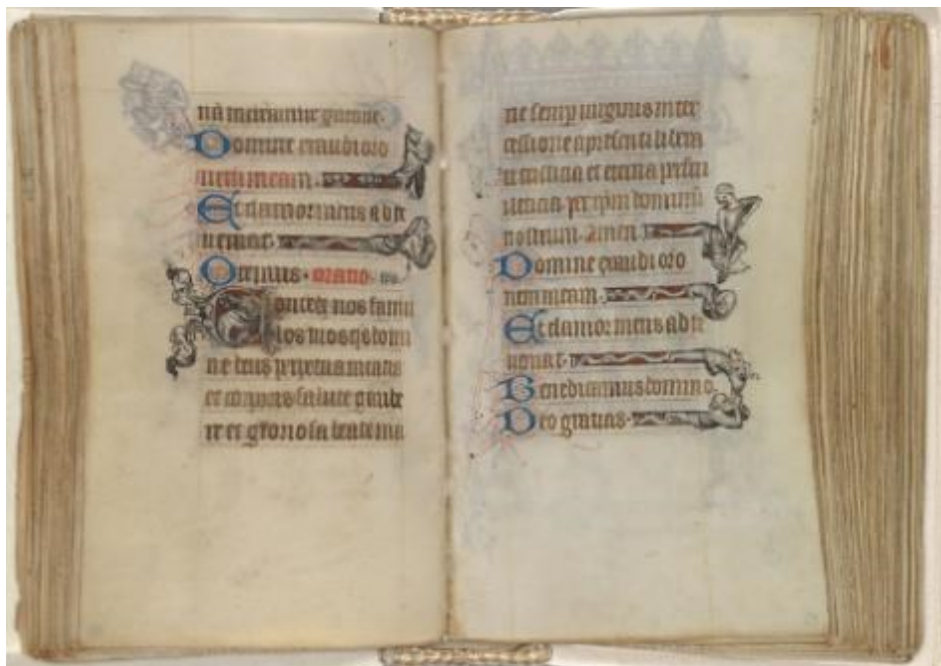 Domine exaudi oro
nem meam.
Et clamor meus ad te
ueniat.
Oremus. oratio.
Concede nos famu
los tuos qs domi
ne deus ppetua mentis
et corporis salute gaude
re et gloriosa beate ma
rie semp uirginis inter
cessione a presenti libera
ri tristicia et eterna pfru
leticia. per xpm dominu
nostrum. Amen
Domine exaudi oro
nem meam.
Et clamor meus ad te
ueniat.
Benedicamus domino
Deo gratias.